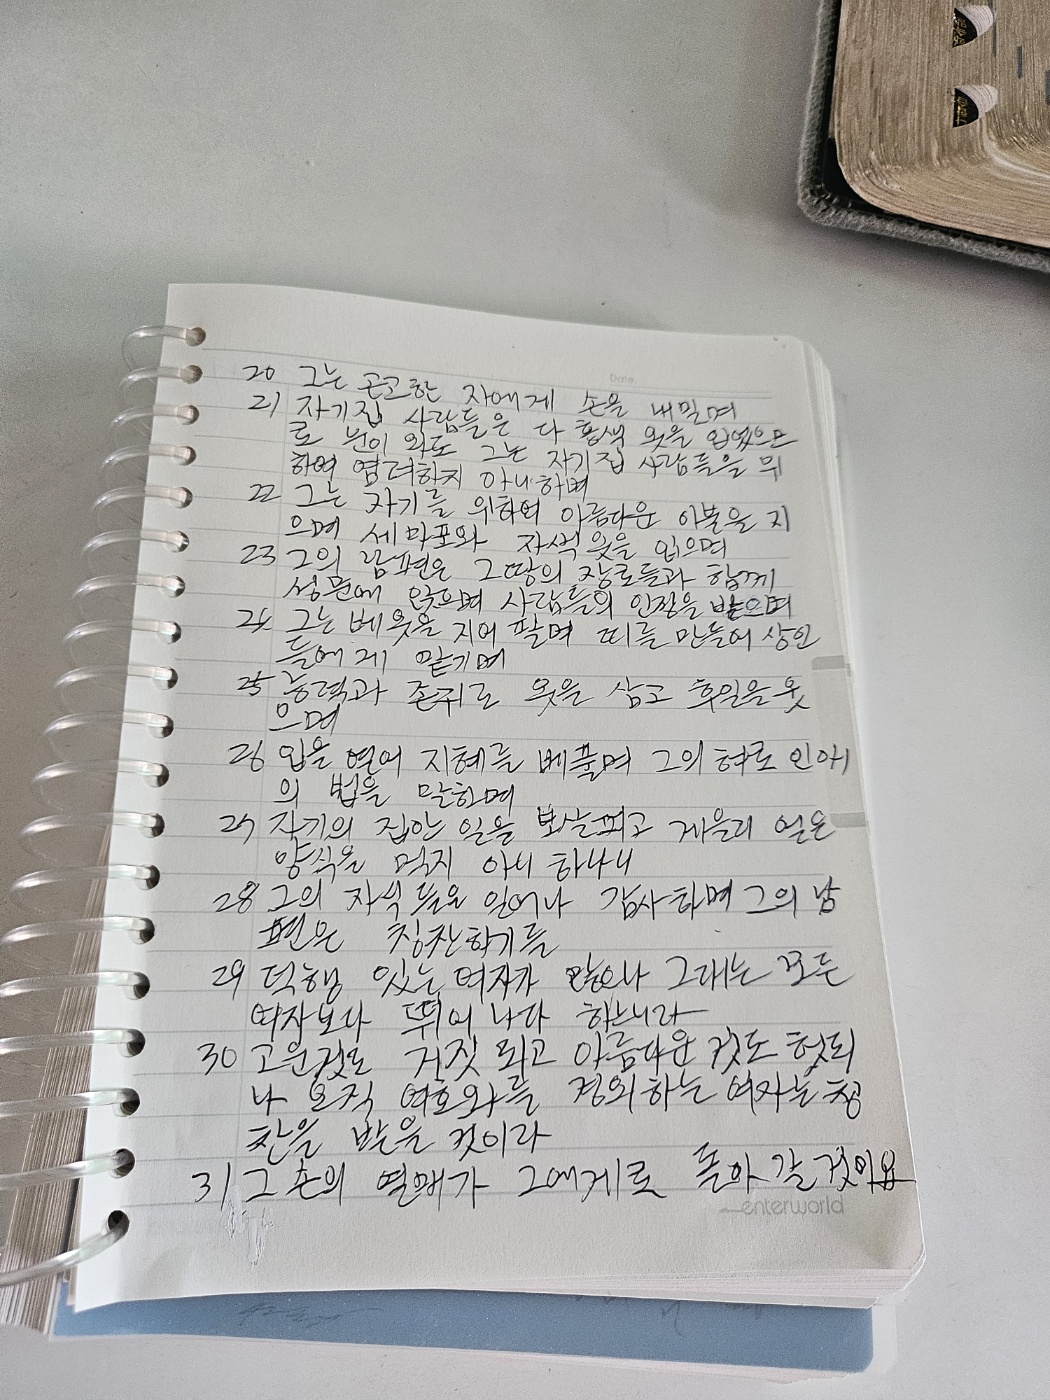 Date
20 그는 곤고한 자에게 손을 내밀며
21 자기집 사람들은 다 홍색 옷을 입었으므
로 눈이 와도 그는 자기집 사람들을 위
하여 염려하지 아니하며
22 그는 자기를 위하여 아름다운 이불을 지
으며 세마포와 자색 옷을 입으며
23 그의 남편은 그땅의 장로들과 함께
성문에 앉으며 사람들의 인정을 받으며
24 그는 베옷을 지어 팔며 띠를 만들어 상인
들에게 맡기며
25 능력과 존귀로 옷을 삼고 후일을 웃
으며
26 입을 열어 지혜를 베풀며 그의 혀로 인애
의 법을 말하며
27 자기의 집안 일을 보살피고 게을리 얻은
양식을 먹지 아니 하나니
28 그의 자식 들은 일어나 감사하며 그의 남
편은 칭찬하기를
29 덕행 있는 여자가 많으나 그대는 모든
여자보다 뛰어 나다 하느니라
30 고운것도 거짓 되고 아름다운 것도 헛되
나 오직 여호와를 경외하는 여자는 칭
찬을 받을 것이라
31 그 손의 열매가 그에게로 돌아 갈 것이요
enterworld